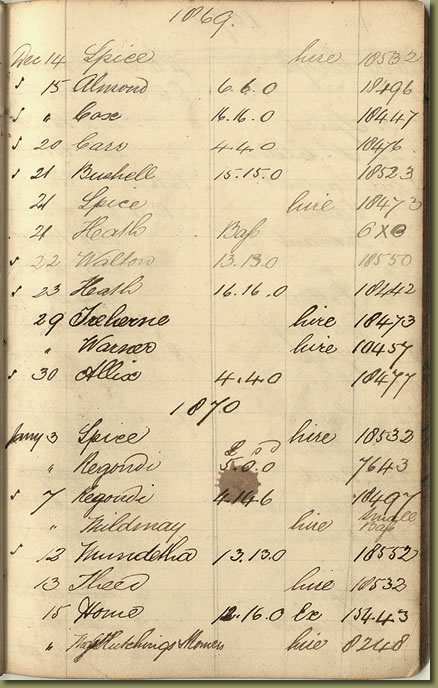 1869.
Dec 14 Spice hire 18532
s 15 Almond 6.6.0 18496
s " Cox 16.16.0 18447
s 20 Carr 4.4.0 18476
s 21 Bushell 15.15.0 18523
21 Spice hire 18473
21 Heath Bass 6X
s 22 Walton 13.13.0 18550
s 23 Heath 16.16.0 18442
29 Treherne hire 18473
" Warner hire 18457
s 30 Allix 4.4.0 18477
1870
Jany 3 Spice hire 18532
" Regondi 7643
s 7 Regondi 4.14.6 18497
" Mildmay hire Small Bass
s 12 13.13.0 18552
13 Theed hire 18532
15 Home 12.16.0 Ex 154.43
" Hutchings hire 8248